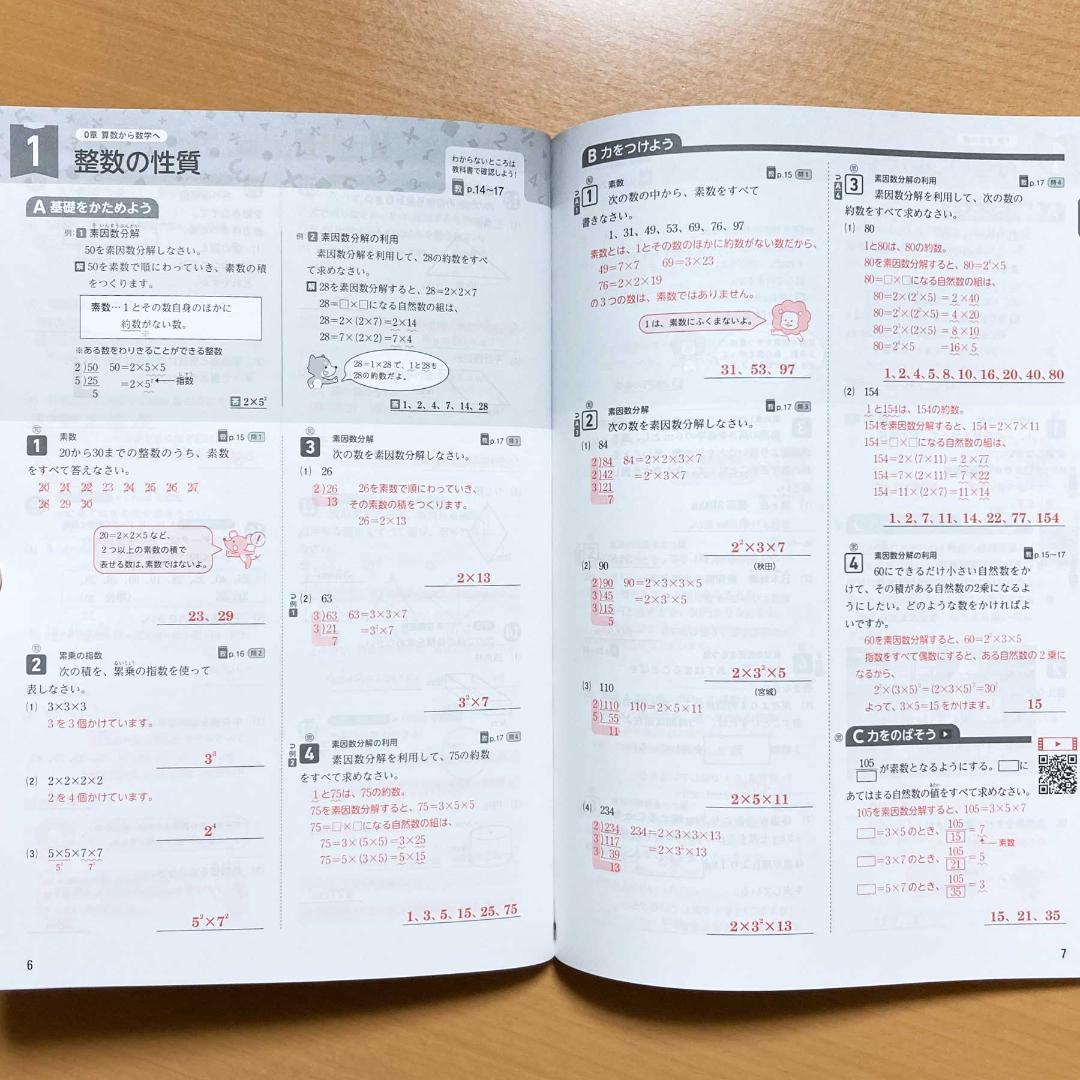 1
0章 算数から数学へ
整数の性質
わからないところは
教科書で確認しよう!
教 p.14~17
A 基礎をかためよう
例 1 素因数分解
50を素因数分解しなさい。
解 50を素数で順にわっていき、素数の積
をつくります。
素数…1とその数自身のほかに
約数がない数。
※
※ある数をわりきることができる整数
2)50 50=2×5×5
5)25 =2×5² ←指数
5
答 2×5²
例 2 素因数分解の利用
素因数分解を利用して、28の約数をすべ
て求めなさい。
解 28を素因数分解すると、28=2×2×7
28=□×□になる自然数の組は、
28=2×(2×7)=2×14
28=7×(2×2)=7×4
28=1×28で、1と28も
28の約数だよ。
答 1、2、4、7、14、28
1 素数 教 p.15 問1
20から30までの整数のうち、素数
をすべて答えなさい。
20 21 22 23 24 25 26 27
28 29 30
20=2×2×5など、
2つ以上の素数の積で
表せる数は、素数ではないよ。
23、29
2 累乗の指数 教 p.16 問2
次の積を、累乗の指数を使って
表しなさい。
(1) 3×3×3
3を3個かけています。
3³
(2) 2×2×2×2
2を4個かけています。
2⁴
(3) 5×5×7×7
5² 7²
5²×7²
6
3 素因数分解 教 p.17 問3
次の数を素因数分解しなさい。
(1) 26
2)26 26を素数で順にわっていき、
13 その素数の積をつくります。
26=2×13
2×13
(2) 63
例1
3)63 63=3×3×7
3)21 =3²×7
7
3²×7
4 素因数分解の利用 教 p.17 問4
例2
素因数分解を利用して、75の約数
をすべて求めなさい。
1と75は、75の約数。
75を素因数分解すると、75=3×5×5
75=□×□になる自然数の組は、
75=3×(5×5)=3×25
75=5×(3×5)=5×15
1、3、5、15、25、75
B 力をつけよう
1 素数 教 p.15 問1
A1
次の数の中から、素数をすべて
書きなさい。
1、31、49、53、69、76、97
素数とは、1とその数のほかに約数がない数だから、
49=7×7 69=3×23
76=2×2×19
の3つの数は、素数ではありません。
1は、素数にふくまないよ。
31、53、97
2 素因数分解 教 p.17 問3
A3
次の数を素因数分解しなさい。
(1) 84
2)84 84=2×2×3×7
2)42 =2²×3×7
3)21
7
2²×3×7
(2) 90 (秋田)
2)90 90=2×3×3×5
3)45 =2×3²×5
3)15
5
2×3²×5
(3) 110 (宮城)
2)110 110=2×5×11
5)55
11
2×5×11
(4) 234
2)234 234=2×3×3×13
3)117 =2×3²×13
3)39
13
2×3²×13
3 素因数分解の利用 教 p.17 問4
A4
素因数分解を利用して、次の数の
約数をすべて求めなさい。
(1) 80
1と80は、80の約数。
80を素因数分解すると、80=2⁴×5
80=□×□になる自然数の組は、
80=2×(2³×5)=2×40
80=2²×(2²×5)=4×20
80=2³×(2×5)=8×10
80=2⁴×5 =16×5
1、2、4、5、8、10、16、20、40、80
(2) 154
1と154は、154の約数。
154を素因数分解すると、154=2×7×11
154=□×□になる自然数の組は、
154=2×(7×11)=2×77
154=7×(2×11)=7×22
154=11×(2×7)=11×14
1、2、7、11、14、22、77、154
4 素因数分解の利用 教 p.15~17
60にできるだけ小さい自然数をか
けて、その積がある自然数の2乗になるよ
うにしたい。どのような数をかければよ
いですか。
60を素因数分解すると、60=2²×3×5
指数をすべて偶数にすると、ある自然数の2乗に
なるから、
2²×(3×5)²=(2×3×5)²=30²
よって、3×5=15をかけます。
15
C 力をのばそう
105/□ が素数となるようにする。□に
あてはまる自然数の値をすべて求めなさい。
105を素因数分解すると、105=3×5×7
□=3×5のとき、105/15=7
素数
□=3×7のとき、105/21=5
□=5×7のとき、105/35=3
15、21、35
7